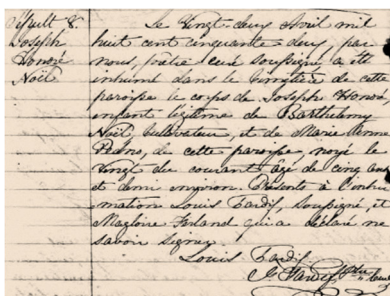 Sépult 8.
Joseph
Honoré
Noël
Le vingt-deux Avril mil
huit cent cinquante-deux, par
nous, prêtre curé soussigné, a été
inhumé dans le cimetière de cette
paroisse le corps de Joseph Honoré
enfant légitime de Barthelemy
Noël, cultivateur, et de Marie Anne
de cette paroisse, noyé le
vingt du courant âgé de cinq ans
et demi environ. Présents à l'inhu
mation Louis Tardif, soussigné, et
Magloire Ferland qui a déclaré ne
savoir signer.
Louis Tardif
J. Tardif, Ptre